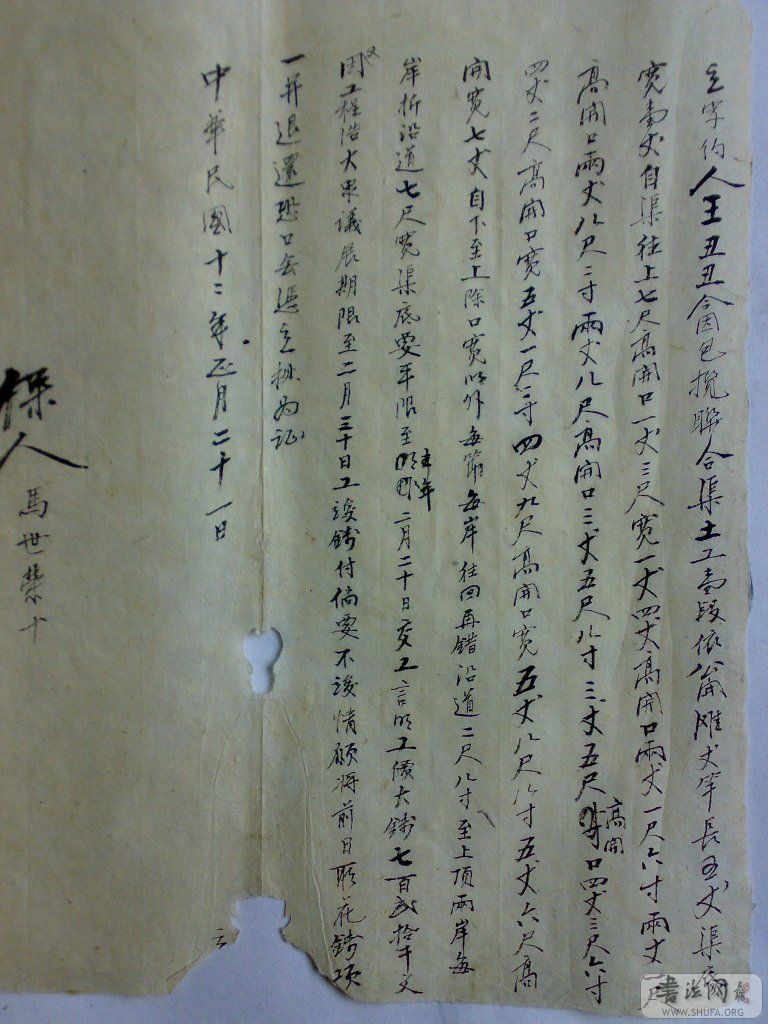 立字约人王丑丑今因包揽联合渠土工壹段依俞摊丈竿长五丈渠底
宽壹丈自渠往上七尺高开口一丈三尺宽一丈四丈高开口兩丈一尺六寸兩丈一尺
高开口兩丈八尺二寸兩丈八尺高开口三丈五尺八寸三丈五尺高開口四丈三尺六寸
四丈二尺高開口宽五丈一尺二寸四丈九尺高開口宽五丈八尺八寸五丈六尺高
開宽七丈自下至上除口宽以外每節每岸往回再错沿道二尺八寸至上顶兩岸每
岸折沿道七尺宽渠底要平限至来年二月二十日交工言明工價大錢七百贰拾千文
又因工程浩大衆議展期限至二月三十日工竣錢付倘要不竣情願将前日所花錢项
一并退還恐口無憑立执为证
中華民國十二年正月二十一日
保人 馬世榮十
书法网
WWW.SHUFA.ORG